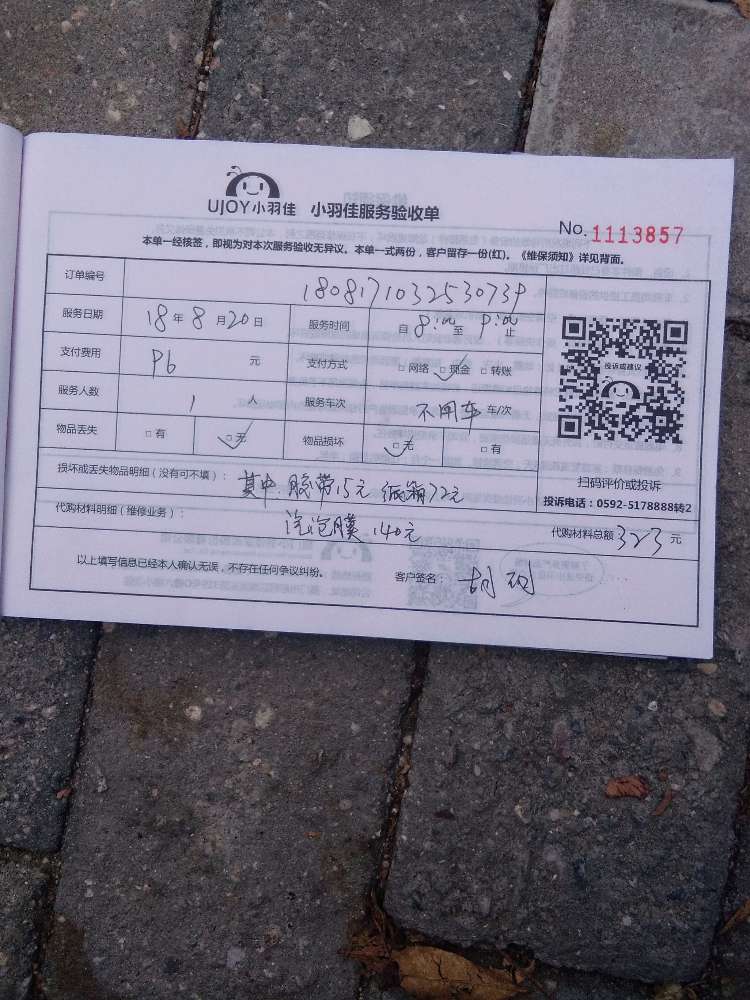 UJOY小羽佳 小羽佳服务验收单
No.1113857
本单一经核签，即视为对本次服务验收无异议。本单一式两份，客户留存一份(红)。《维保须知》详见背面。
订单编号 1808171032530739
服务日期 18年8月20日 服务时间 自8:00至9:00止
支付费用 96 元 支付方式 □网络 □现金 □转账
服务人数 1 人 服务车次 不用车 车/次
物品丢失 □有 □无 物品损坏 □无 □有
投诉或建议
扫码评价或投诉
投诉电话：0592-5178888转2
损坏或丢失物品明细（没有可不填）： 其中 胶带15元 纸箱72元
代购材料明细（维修业务）： 泡泡膜 140元 代购材料总额 323 元
以上填写信息已经本人确认无误，不存在任何争议纠纷。 客户签名：